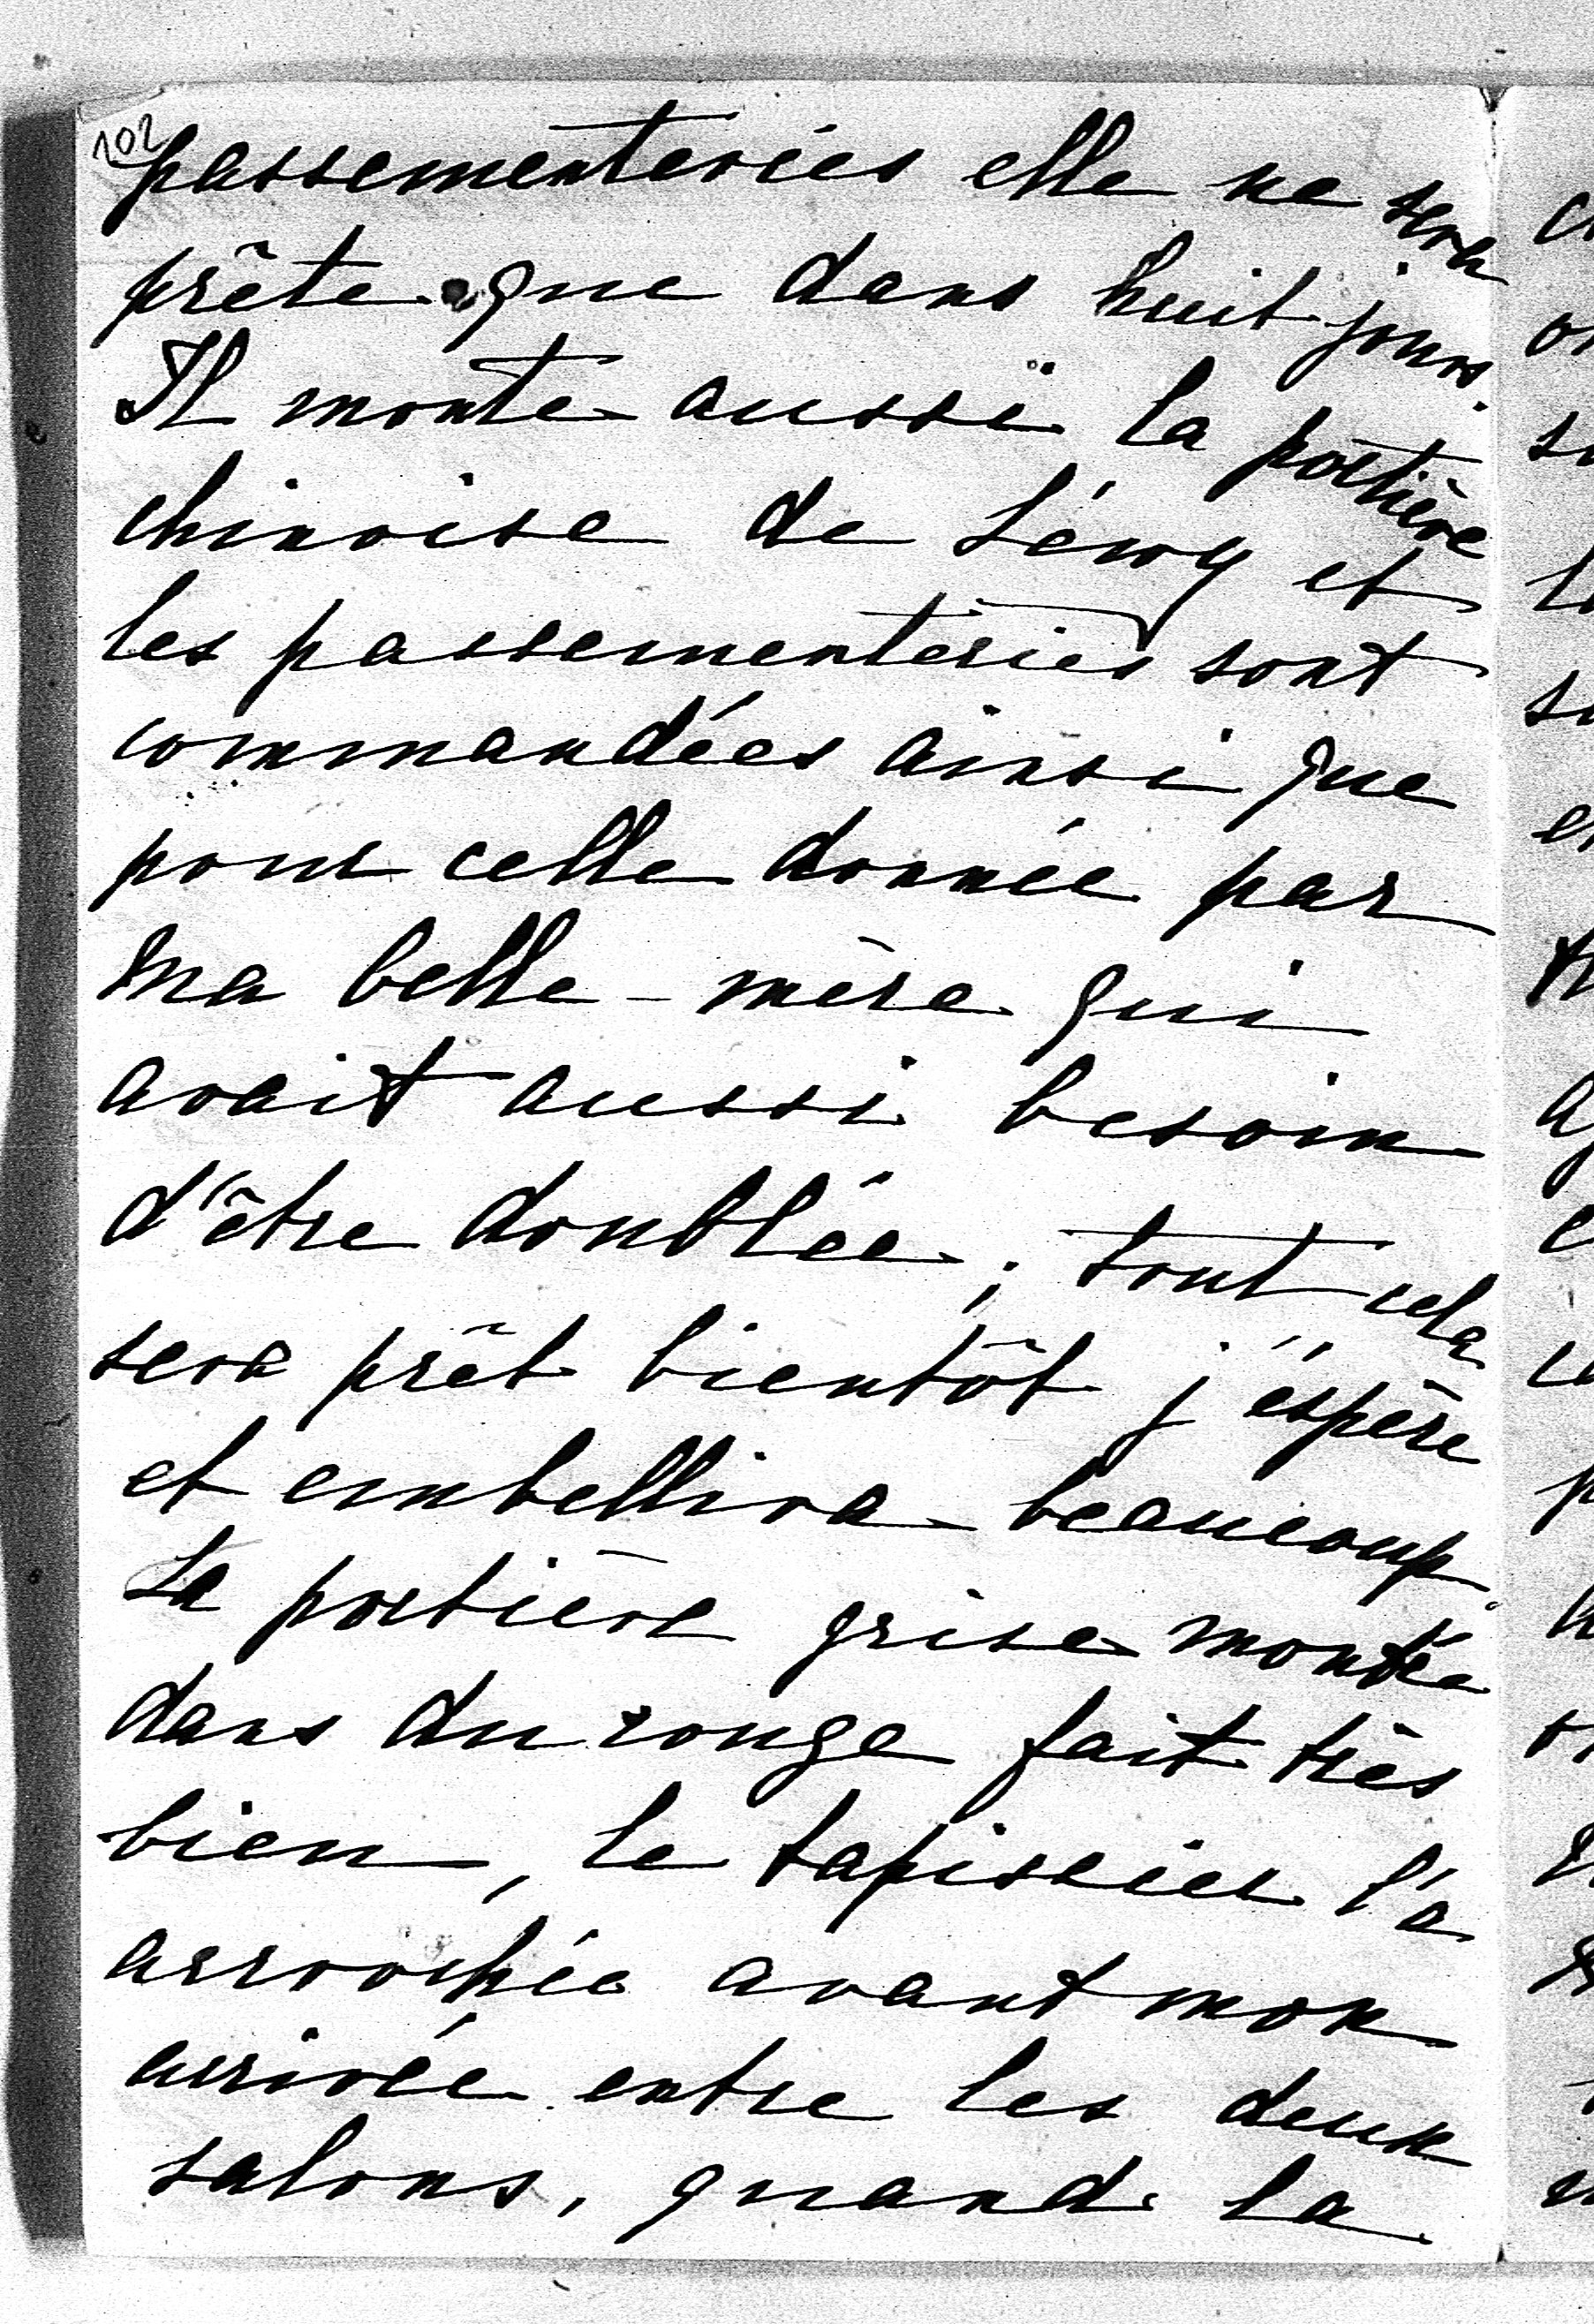 102
passementeries elle ne sera
prête que dans huit jours.
Il monte aussi la portière
chinoise de Lévy et
les passementeries sont
commandées ainsi que
pour celle donnée par
ma belle-mère qui
avait aussi besoin
d'être doublée ; tout cela
sera prêt bientôt j'éspère
et embellira beaucoup.
La portière grise montée
dans du rouge fait très
bien, le tapissier l'a
arrochée avant mon
arrivée entre les deux
salons, quand la